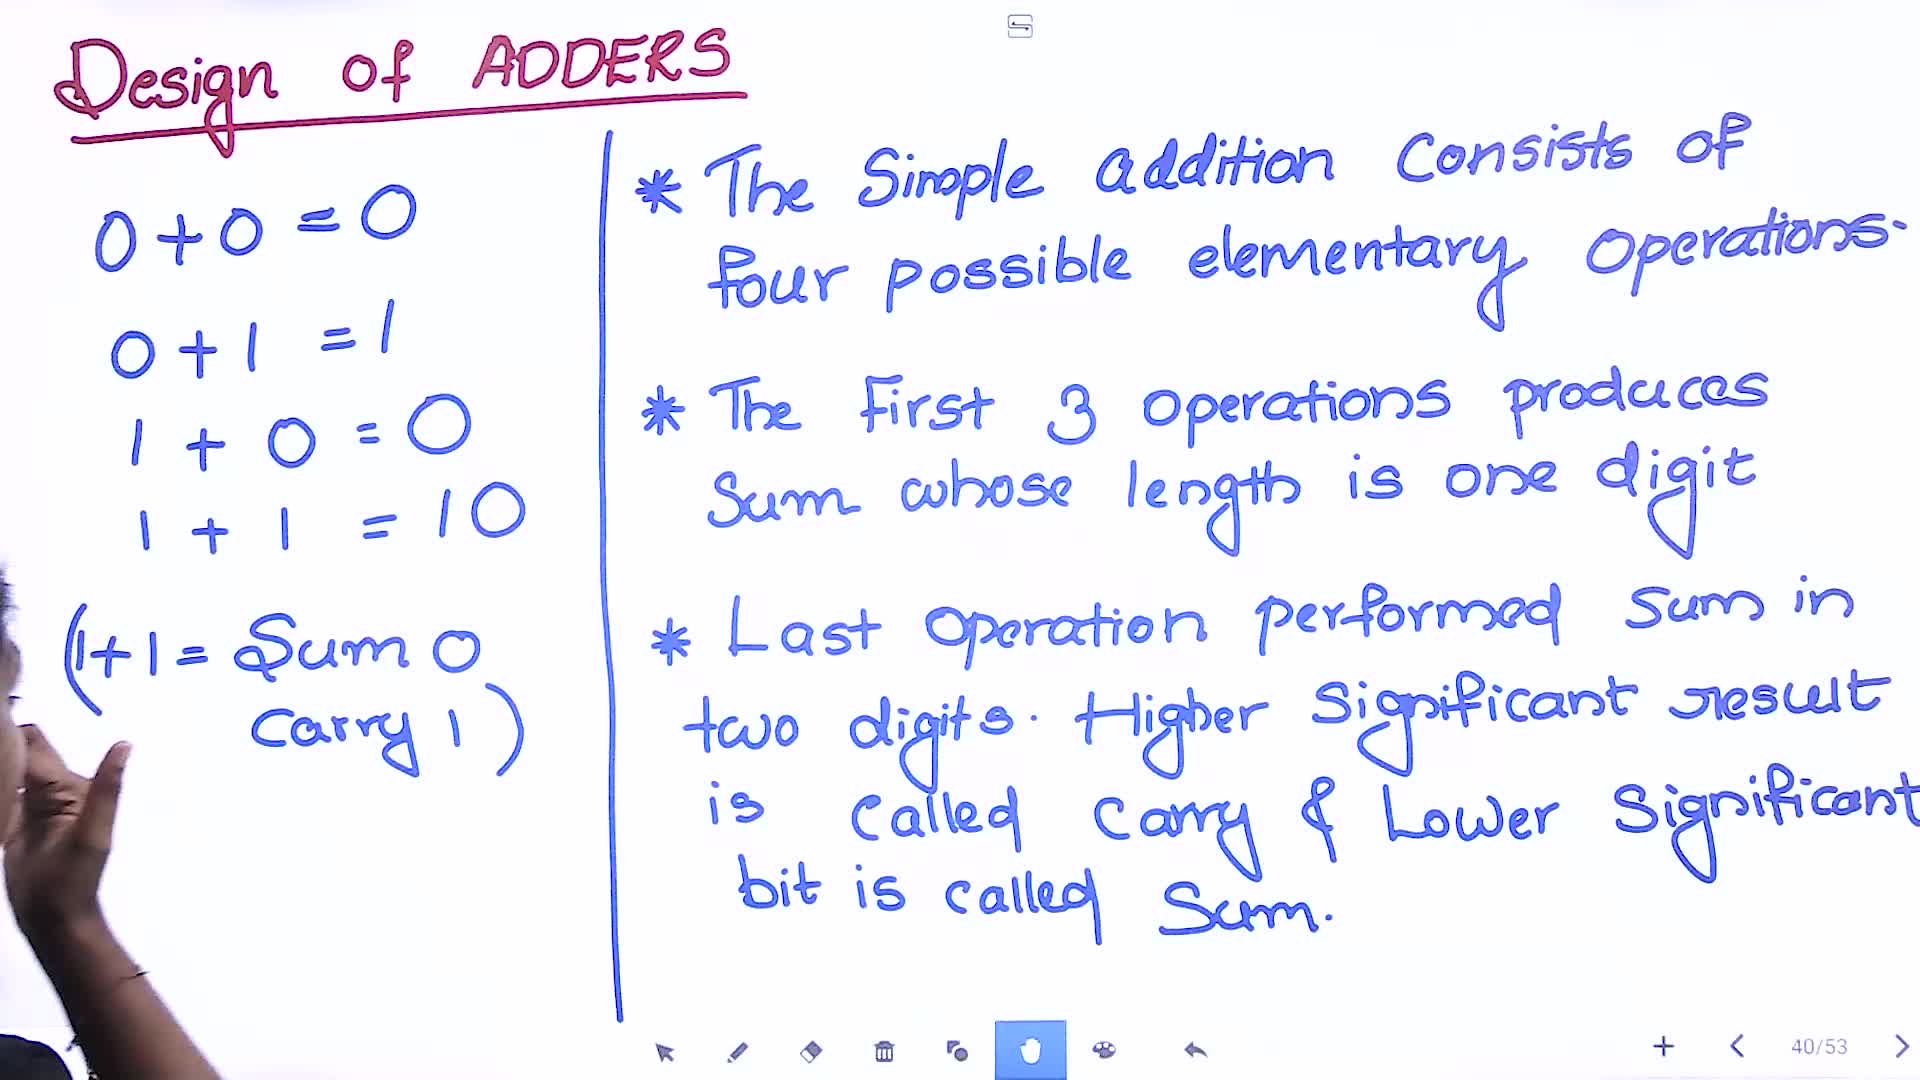 Design of ADDERS
0 + 0 = 0
0 + 1 = 1
1 + 0 = 0
1 + 1 = 10
(1+1 = Sum 0
Carry 1)
* The Simple addition Consists of
four possible elementary Operations.
* The First 3 Operations produces
Sum whose length is one digit
* Last Operation performed Sum in
two digits. Higher Significant result
is called Carry & Lower Significant
bit is called Sum.
40/53